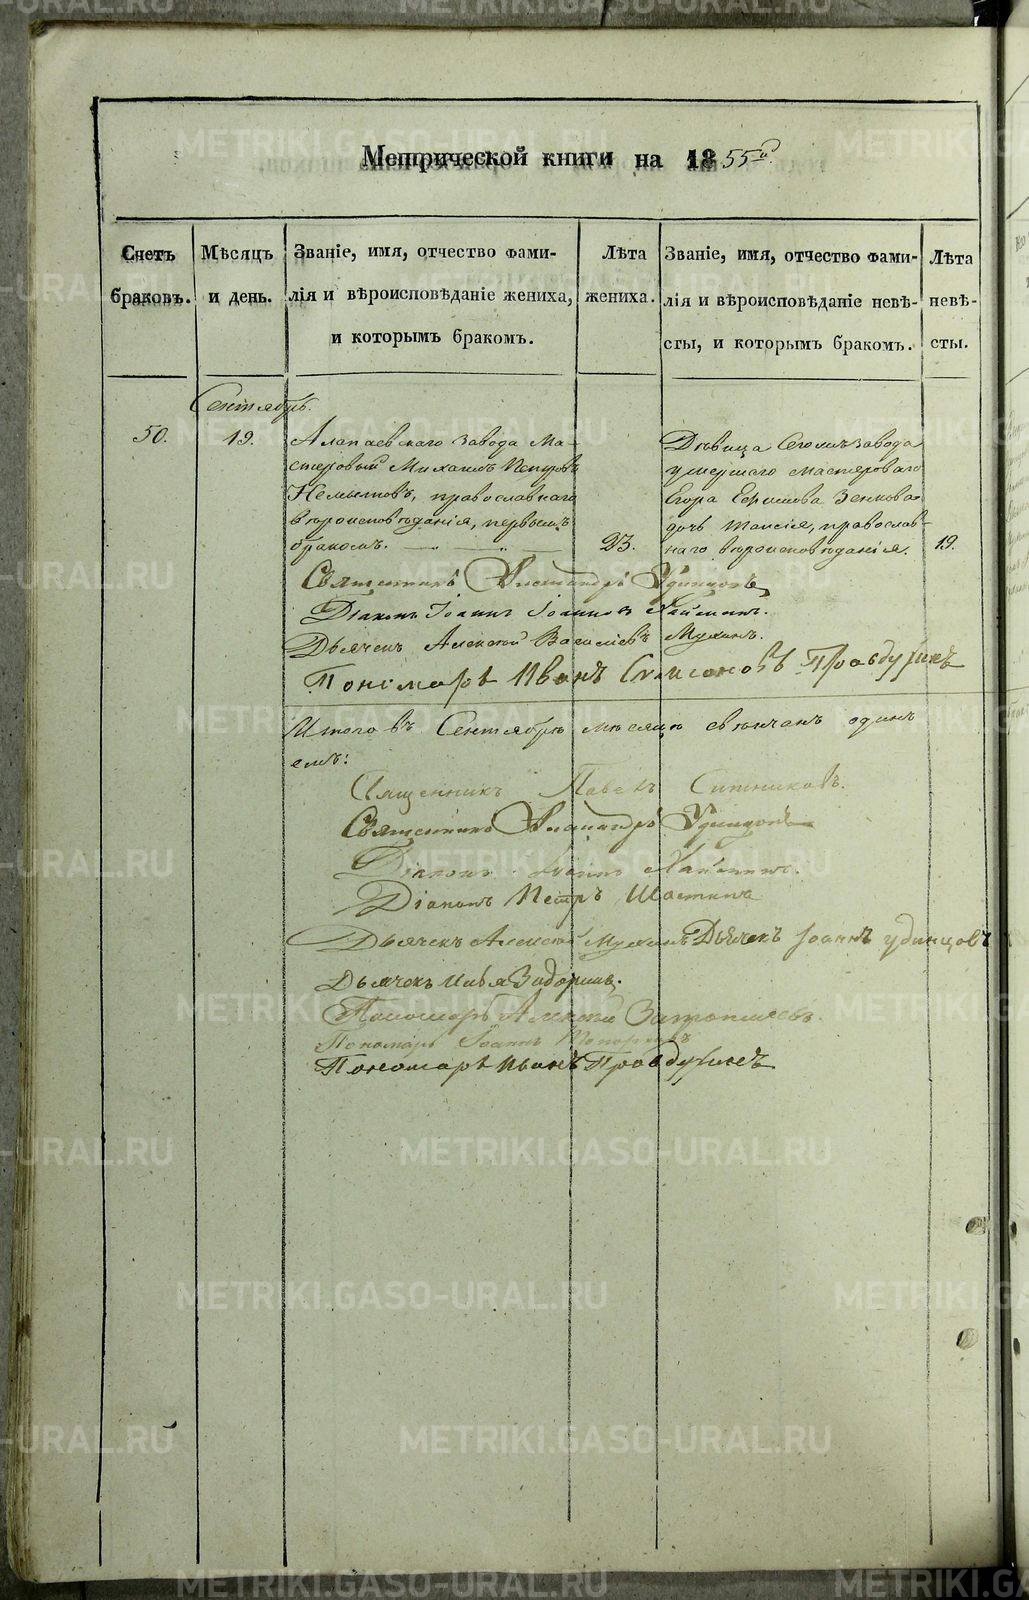 Метрической книги на 1855й.
Счетъ
браковъ.
Мѣсяцъ
и день.
Званіе, имя, отчество фами-
лія и вѣроисповѣданіе жениха,
и которымъ бракомъ.
Лѣта
жениха.
Званіе, имя, отчество фами-
лія и вѣроисповѣданіе невѣ-
сты, и которымъ бракомъ.
Лѣта
невѣ-
сты.
Сентябрь.
50.
19.
Алапаевскаго завода Ма-
стеровый Михаилъ Петровъ
Немытовъ, православнаго
вѣроисповѣданія, первымъ
бракомъ.
23.
Дѣвица Сегожъ завода
умершаго мастероваго
Егора Ефимова Зенкова
дочь Таисія, православ-
наго вѣроисповѣданія.
19.
Священникъ Александръ Удинцовъ
Діаконъ Іоаннъ Іоанновъ
Дьячекъ Алексѣй Васильевъ Мухинъ.
Пономарь Иванъ Симеоновъ Правдухинъ
Итого въ Сентябрѣ мѣсяцѣ вѣнчанъ одинъ
Священникъ Павелъ Ситниковъ.
Священникъ Александръ Удинцовъ
Діаконъ Іоаннъ
Діаконъ Петръ
Дьячекъ Алексѣй Мухинъ Дьячекъ Іоаннъ Удинцовъ
Дьячекъ Илья Задоринъ.
Пономарь Алексѣй
Пономарь Іоаннъ Топорковъ
Пономарь Иванъ Правдухинъ
METRIKI.GASO-URAL.RU